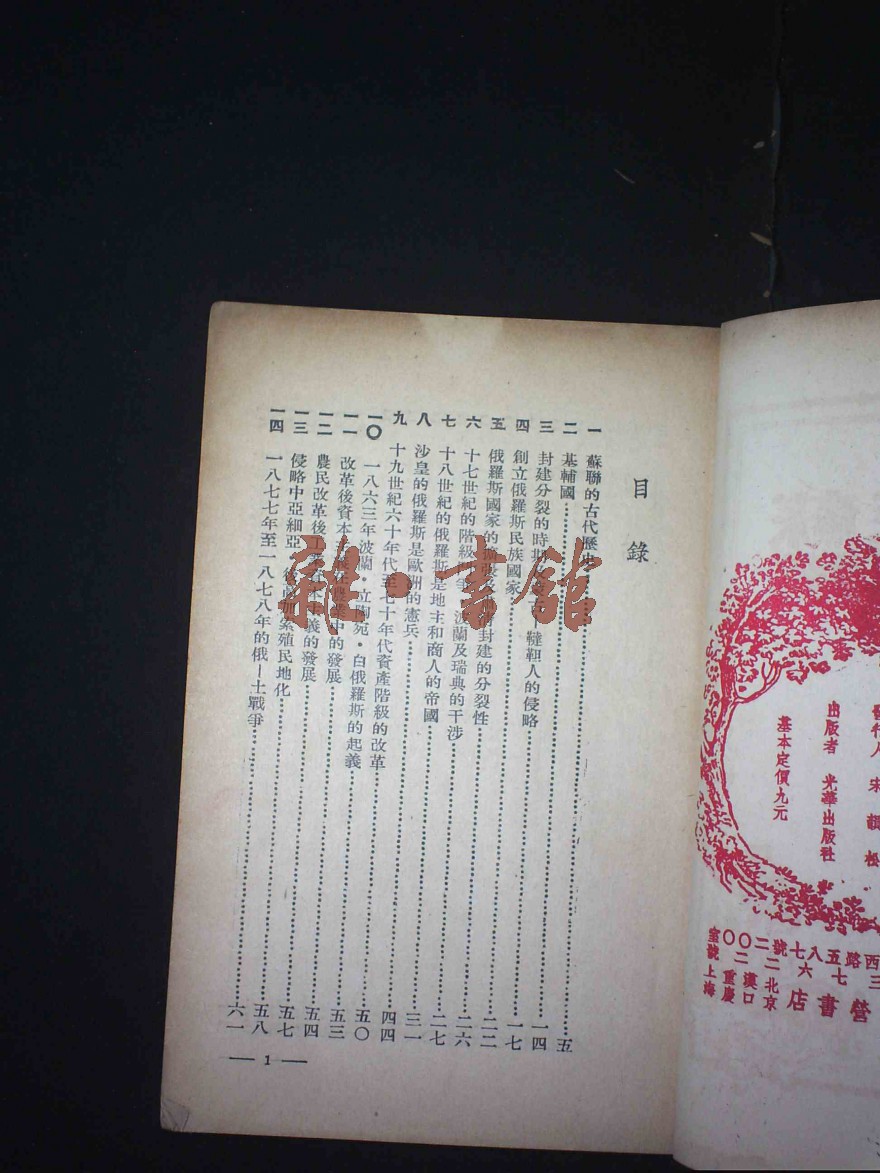 目錄
一 蘇聯的古代歷史……五
二 基輔國……一四
三 封建分裂的時期 韃靼人的侵略……一七
四 創立俄羅斯民族國家……二二
五 俄羅斯國家的擴張 封建的分裂性……二六
六 十七世紀的階級 波蘭及瑞典的干涉……二七
七 十八世紀的俄羅斯是地主和商人的帝國……三一
八 沙皇的俄羅斯是歐洲的憲兵……四四
九 十九世紀六十年代至七十年代資產階級的改革……五〇
一〇 一八六三年波蘭·立陶宛·白俄羅斯的起義……五三
一一 改革後資本主義在農業中的發展……五四
一二 農民改革後工業資本主義的發展……五七
一三 侵略中亞細亞·後高加索殖民地化……五八
一四 一八七七年至一八七八年的俄—土戰爭……六一
— 1 —
雜·書館
出版者 光華出版社
基本定價九元
營書店
北京
漢口
重慶
上海